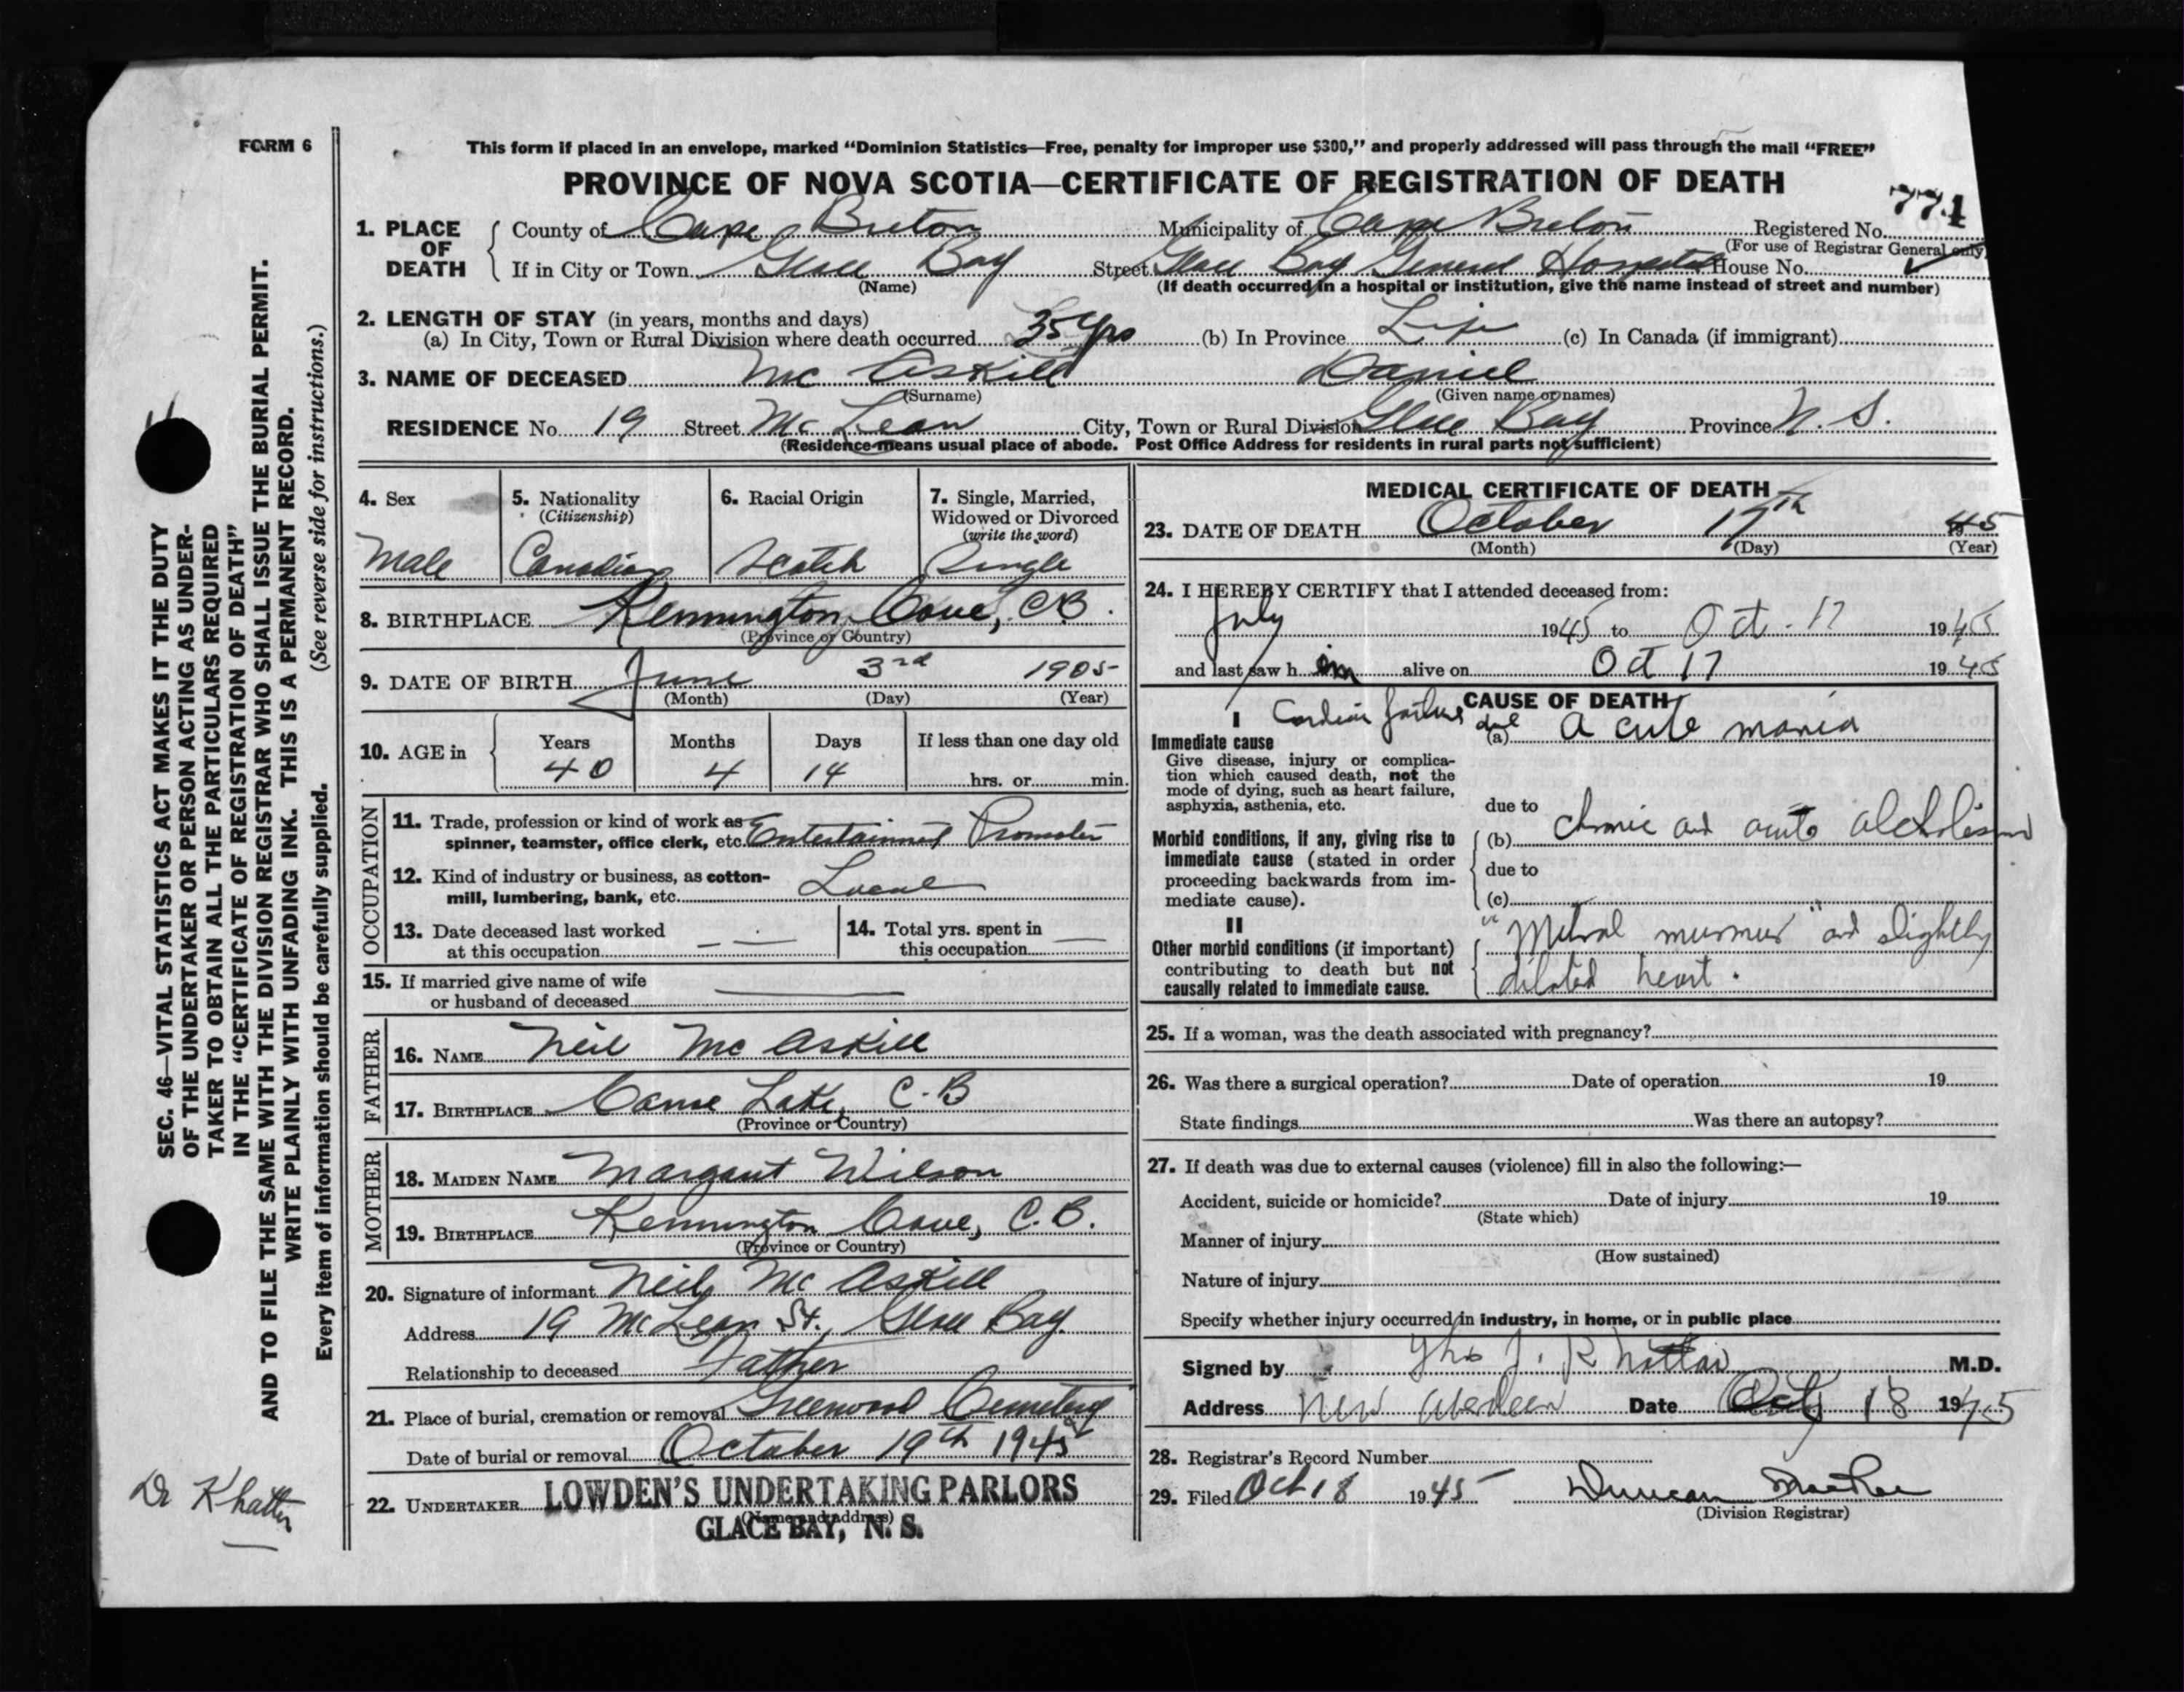 FORM 6
This form if placed in an envelope, marked “Dominion Statistics—Free, penalty for improper use $300,” and properly addressed will pass through the mail “FREE”
PROVINCE OF NOVA SCOTIA—CERTIFICATE OF REGISTRATION OF DEATH
774
1. PLACE OF DEATH County of Cape Breton Municipality of Cape Breton Registered No.
(For use of Registrar General only)
If in City or Town Glace Bay Street Glace Bay General Hospital House No.
(Name) (If death occurred in a hospital or institution, give the name instead of street and number)
2. LENGTH OF STAY (in years, months and days)
(a) In City, Town or Rural Division where death occurred 35 yrs (b) In Province Life (c) In Canada (if immigrant)
3. NAME OF DECEASED Mc Askill Daniel
(Surname) (Given name or names)
RESIDENCE No. 19 Street Mc Lean City, Town or Rural Division Glace Bay Province N. S.
(Residence means usual place of abode. Post Office Address for residents in rural parts not sufficient)
4. Sex Male
5. Nationality (Citizenship) Canadian
6. Racial Origin Scotch
7. Single, Married, Widowed or Divorced (write the word) Single
8. BIRTHPLACE Kennington Cove, C.B.
(Province or Country)
9. DATE OF BIRTH June 3rd 1905
(Month) (Day) (Year)
10. AGE in Years Months Days If less than one day old
40 4 14 hrs. or min.
OCCUPATION
11. Trade, profession or kind of work as
spinner, teamster, office clerk, etc. Entertainment Promoter
12. Kind of industry or business, as cotton-
mill, lumbering, bank, etc. Local
13. Date deceased last worked
at this occupation
14. Total yrs. spent in
this occupation
15. If married give name of wife
or husband of deceased
FATHER
16. NAME Neil Mc Askill
17. BIRTHPLACE Lake, C.B
(Province or Country)
MOTHER
18. MAIDEN NAME Margaret Wilson
19. BIRTHPLACE Kennington Cove, C.B.
(Province or Country)
20. Signature of informant Neil Mc Askill
Address 19 McLean St., Glace Bay
Relationship to deceased Father
21. Place of burial, cremation or removal Greenwood Cemetery
Date of burial or removal October 19th 1945
22. UNDERTAKER LOWDEN'S UNDERTAKING PARLORS
(Name and address)
GLACE BAY, N. S.
MEDICAL CERTIFICATE OF DEATH
23. DATE OF DEATH October 17th 45
(Month) (Day) (Year)
24. I HEREBY CERTIFY that I attended deceased from:
July 1945 to Oct. 17 1945
and last saw him alive on Oct 17 1945
CAUSE OF DEATH
I Cardiac failure due
Immediate cause (a) Acute mania
Give disease, injury or complica-
tion which caused death, not the
mode of dying, such as heart failure,
asphyxia, asthenia, etc.
due to
Morbid conditions, if any, giving rise to (b) chronic and acute alcholism
immediate cause (stated in order
proceeding backwards from im-
mediate cause).
due to
(c)
II
Other morbid conditions (if important)
contributing to death but not
causally related to immediate cause.
"Mitral murmur" and slightly
dilated heart.
25. If a woman, was the death associated with pregnancy?
26. Was there a surgical operation? Date of operation 19
State findings Was there an autopsy?
27. If death was due to external causes (violence) fill in also the following:—
Accident, suicide or homicide? Date of injury 19
(State which)
Manner of injury
(How sustained)
Nature of injury
Specify whether injury occurred in industry, in home, or in public place
Signed by M.D.
Address New Aberdeen Date Oct 18 1945
28. Registrar's Record Number
29. Filed Oct 18 1945 Duncan
(Division Registrar)
SEC. 46—VITAL STATISTICS ACT MAKES IT THE DUTY
OF THE UNDERTAKER OR PERSON ACTING AS UNDER-
TAKER TO OBTAIN ALL THE PARTICULARS REQUIRED
IN THE “CERTIFICATE OF REGISTRATION OF DEATH”
AND TO FILE THE SAME WITH THE DIVISION REGISTRAR WHO SHALL ISSUE THE BURIAL PERMIT.
WRITE PLAINLY WITH UNFADING INK. THIS IS A PERMANENT RECORD.
Every item of information should be carefully supplied. (See reverse side for instructions.)
Dr Khatter